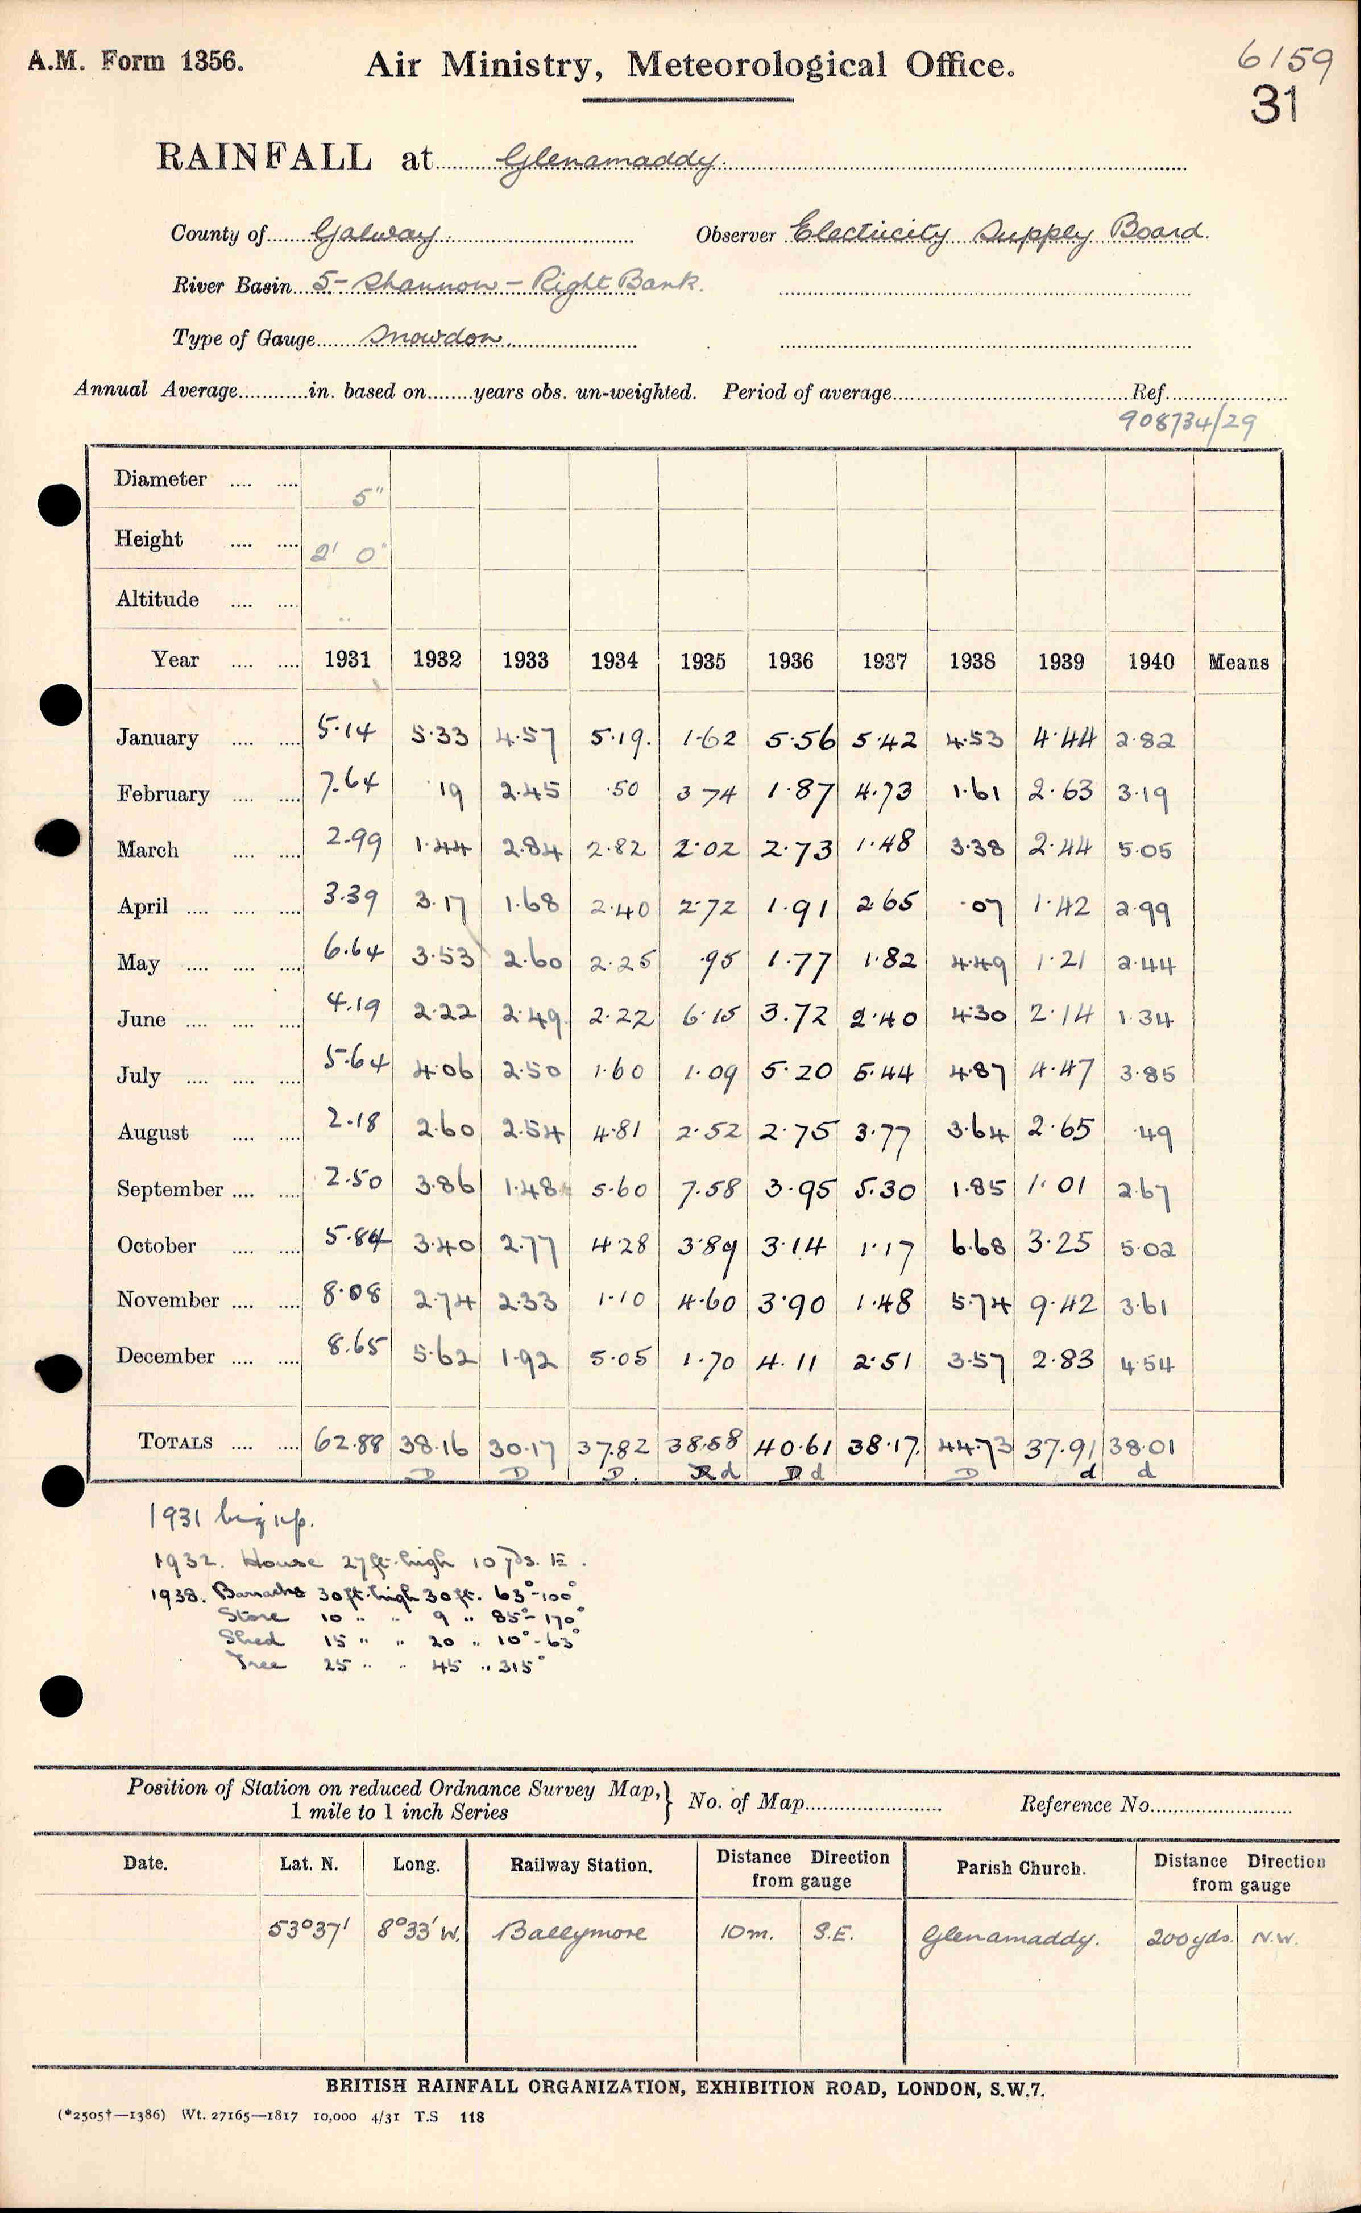 A.M. Form 1356.
Air Ministry, Meteorological Office.
6159
31
RAINFALL at Glenamaddy
County of Galway Observer Electricity Supply Board
River Basin 5 - Shannon - Right Bank.
Type of Gauge Snowdon
Annual Average............in. based on........years obs. un-weighted. Period of average............Ref............
908734/29
Diameter 5"
Height 2' 0"
Altitude
Year 1931 1932 1933 1934 1935 1936 1937 1938 1939 1940 Means
January 5.14 5.33 4.57 5.19 1.62 5.56 5.42 4.53 4.44 2.82
February 7.64 .19 2.45 .50 3.74 1.87 4.73 1.61 2.63 3.19
March 2.99 1.44 2.84 2.82 2.02 2.73 1.48 3.38 2.44 5.05
April 3.39 3.17 1.68 2.40 2.72 1.91 2.65 .07 1.42 2.99
May 6.64 3.53 2.60 2.25 .95 1.77 1.82 4.49 1.21 2.44
June 4.19 2.22 2.49 2.22 6.15 3.72 2.40 4.30 2.14 1.34
July 5.64 4.06 2.50 1.60 1.09 5.20 5.44 4.87 4.47 3.85
August 2.18 2.60 2.54 4.81 2.52 2.75 3.77 3.64 2.65 .49
September 2.50 3.86 1.48 5.60 7.58 3.95 5.30 1.85 1.01 2.67
October 5.84 3.40 2.77 4.28 3.89 3.14 1.17 6.68 3.25 5.02
November 8.08 2.74 2.33 1.10 4.60 3.90 1.48 5.74 9.42 3.61
December 8.65 5.62 1.92 5.05 1.70 4.11 2.51 3.57 2.83 4.54
TOTALS 62.88 38.16 30.17 37.82 38.58 40.61 38.17 44.73 37.91 38.01
D D D. d D d D d d
1931 big up.
1932. House 27ft. high 10 yds. E.
1938. Barracks 30ft. high 30ft. 63°-100°
Store 10 " " 9 " 85°-170°
Shed 15 " " 20 " 10°-63°
Tree 25 " " 45 " 315°
Position of Station on reduced Ordnance Survey Map, } No. of Map............ Reference No............
1 mile to 1 inch Series
Date. Lat. N. Long. Railway Station. Distance Direction from gauge Parish Church. Distance Direction from gauge
53°37' 8°33' W. Ballymore 10 m. S.E. Glenamaddy. 200 yds. N.W.
BRITISH RAINFALL ORGANIZATION, EXHIBITION ROAD, LONDON, S.W.7.
(*2505†—1386) Wt. 27165—1817 10,000 4/31 T.S 118